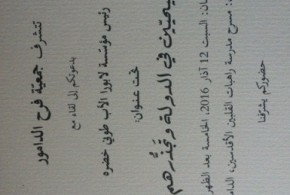 تتشرف جمعية فرح الدامور
بدعوتكم إلى لقاء مع
رئيس مؤسسة لابورا الأب طوني خضره
تحت عنوان:
في الدولة وتجذّرهم
السبت 12 آذار 2016، الخامسة بعد الظهر
مسرح مدرسة راهبات القلبين الأقدسين،
حضوركم يشرّفنا